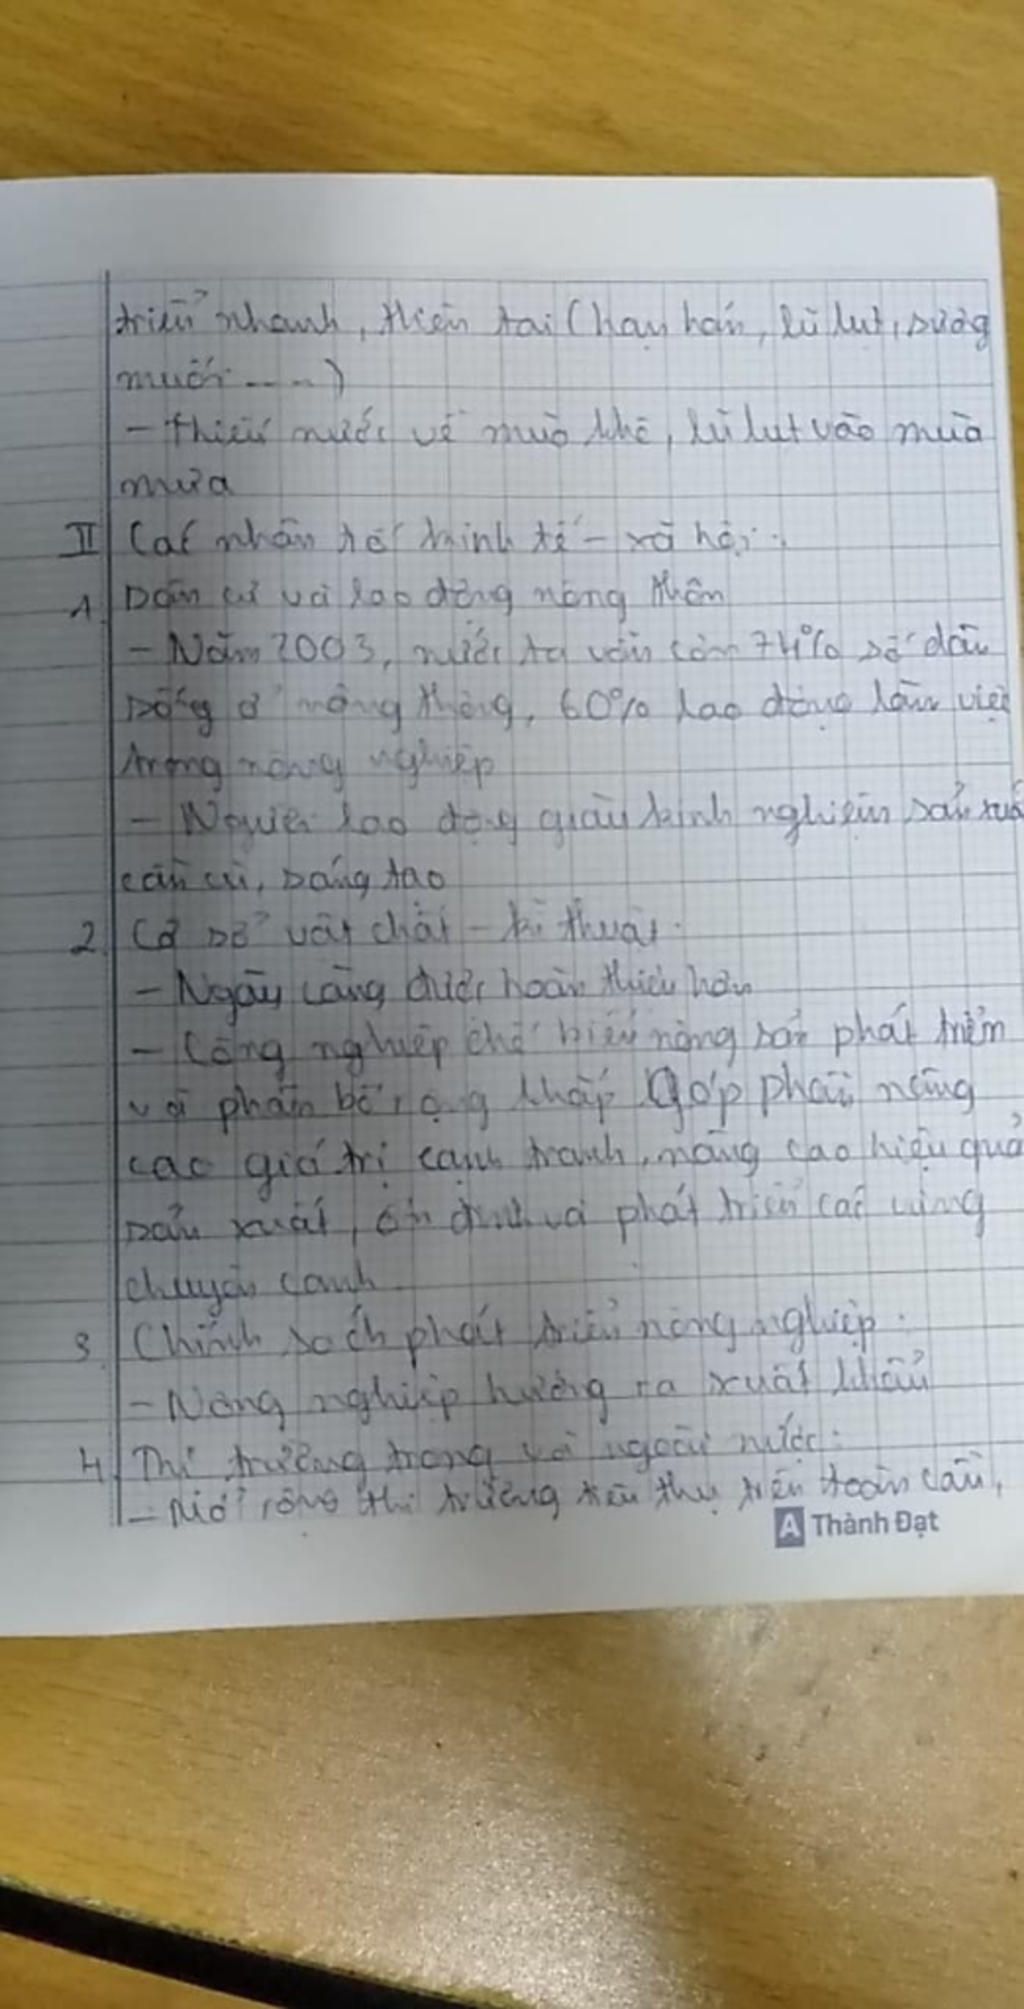 triển nhanh, thiên tai (hạn hán, lũ lụt, sương
muối ....)
- thiếu nước về mùa khô, lũ lụt vào mùa
mưa
II Các nhân tố kinh tế - xã hội:
1 Dân cư và lao động nông thôn
- Năm 2003, nước ta vẫn còn 74% số dân
sống ở nông thông, 60% lao động làm việc
trong nông nghiệp
- Người lao động giàu kinh nghiệm sản xuấ
cần cù, sáng tạo
2 Cơ sở vật chất - kĩ thuật.
- Ngày càng được hoàn thiện hơn
- Công nghiệp chế biến nông sản phát triển
và phân bố rộng khắp. Góp phần nâng
cao giá trị cạnh tranh, nâng cao hiệu quả
sản xuất, ổn định và phát triển các vùng
chuyên canh
3. Chính sách phát triển nông nghiệp.
- Nông nghiệp hướng ra xuất khẩu
4. Thị trường trong và ngoài nước:
- Mở rộng thị trường tiêu thụ trên toàn cầu,
A Thành Đạt